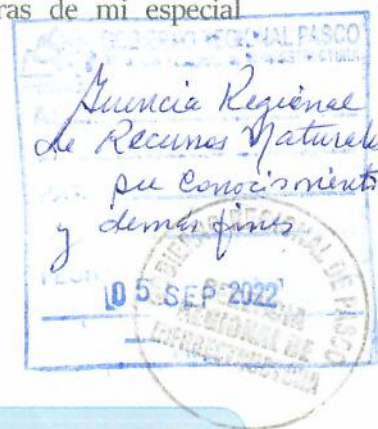 ras de mi especial
GOBIERNO REGIONAL PASCO
Gerencia Regional
de Recursos Naturales
su conocimiento
y demás fines
05 SEP 2022
GOBIERNO REGIONAL DE PASCO
GERENCIA
REGIONAL DE
INFRAESTRUCTURA